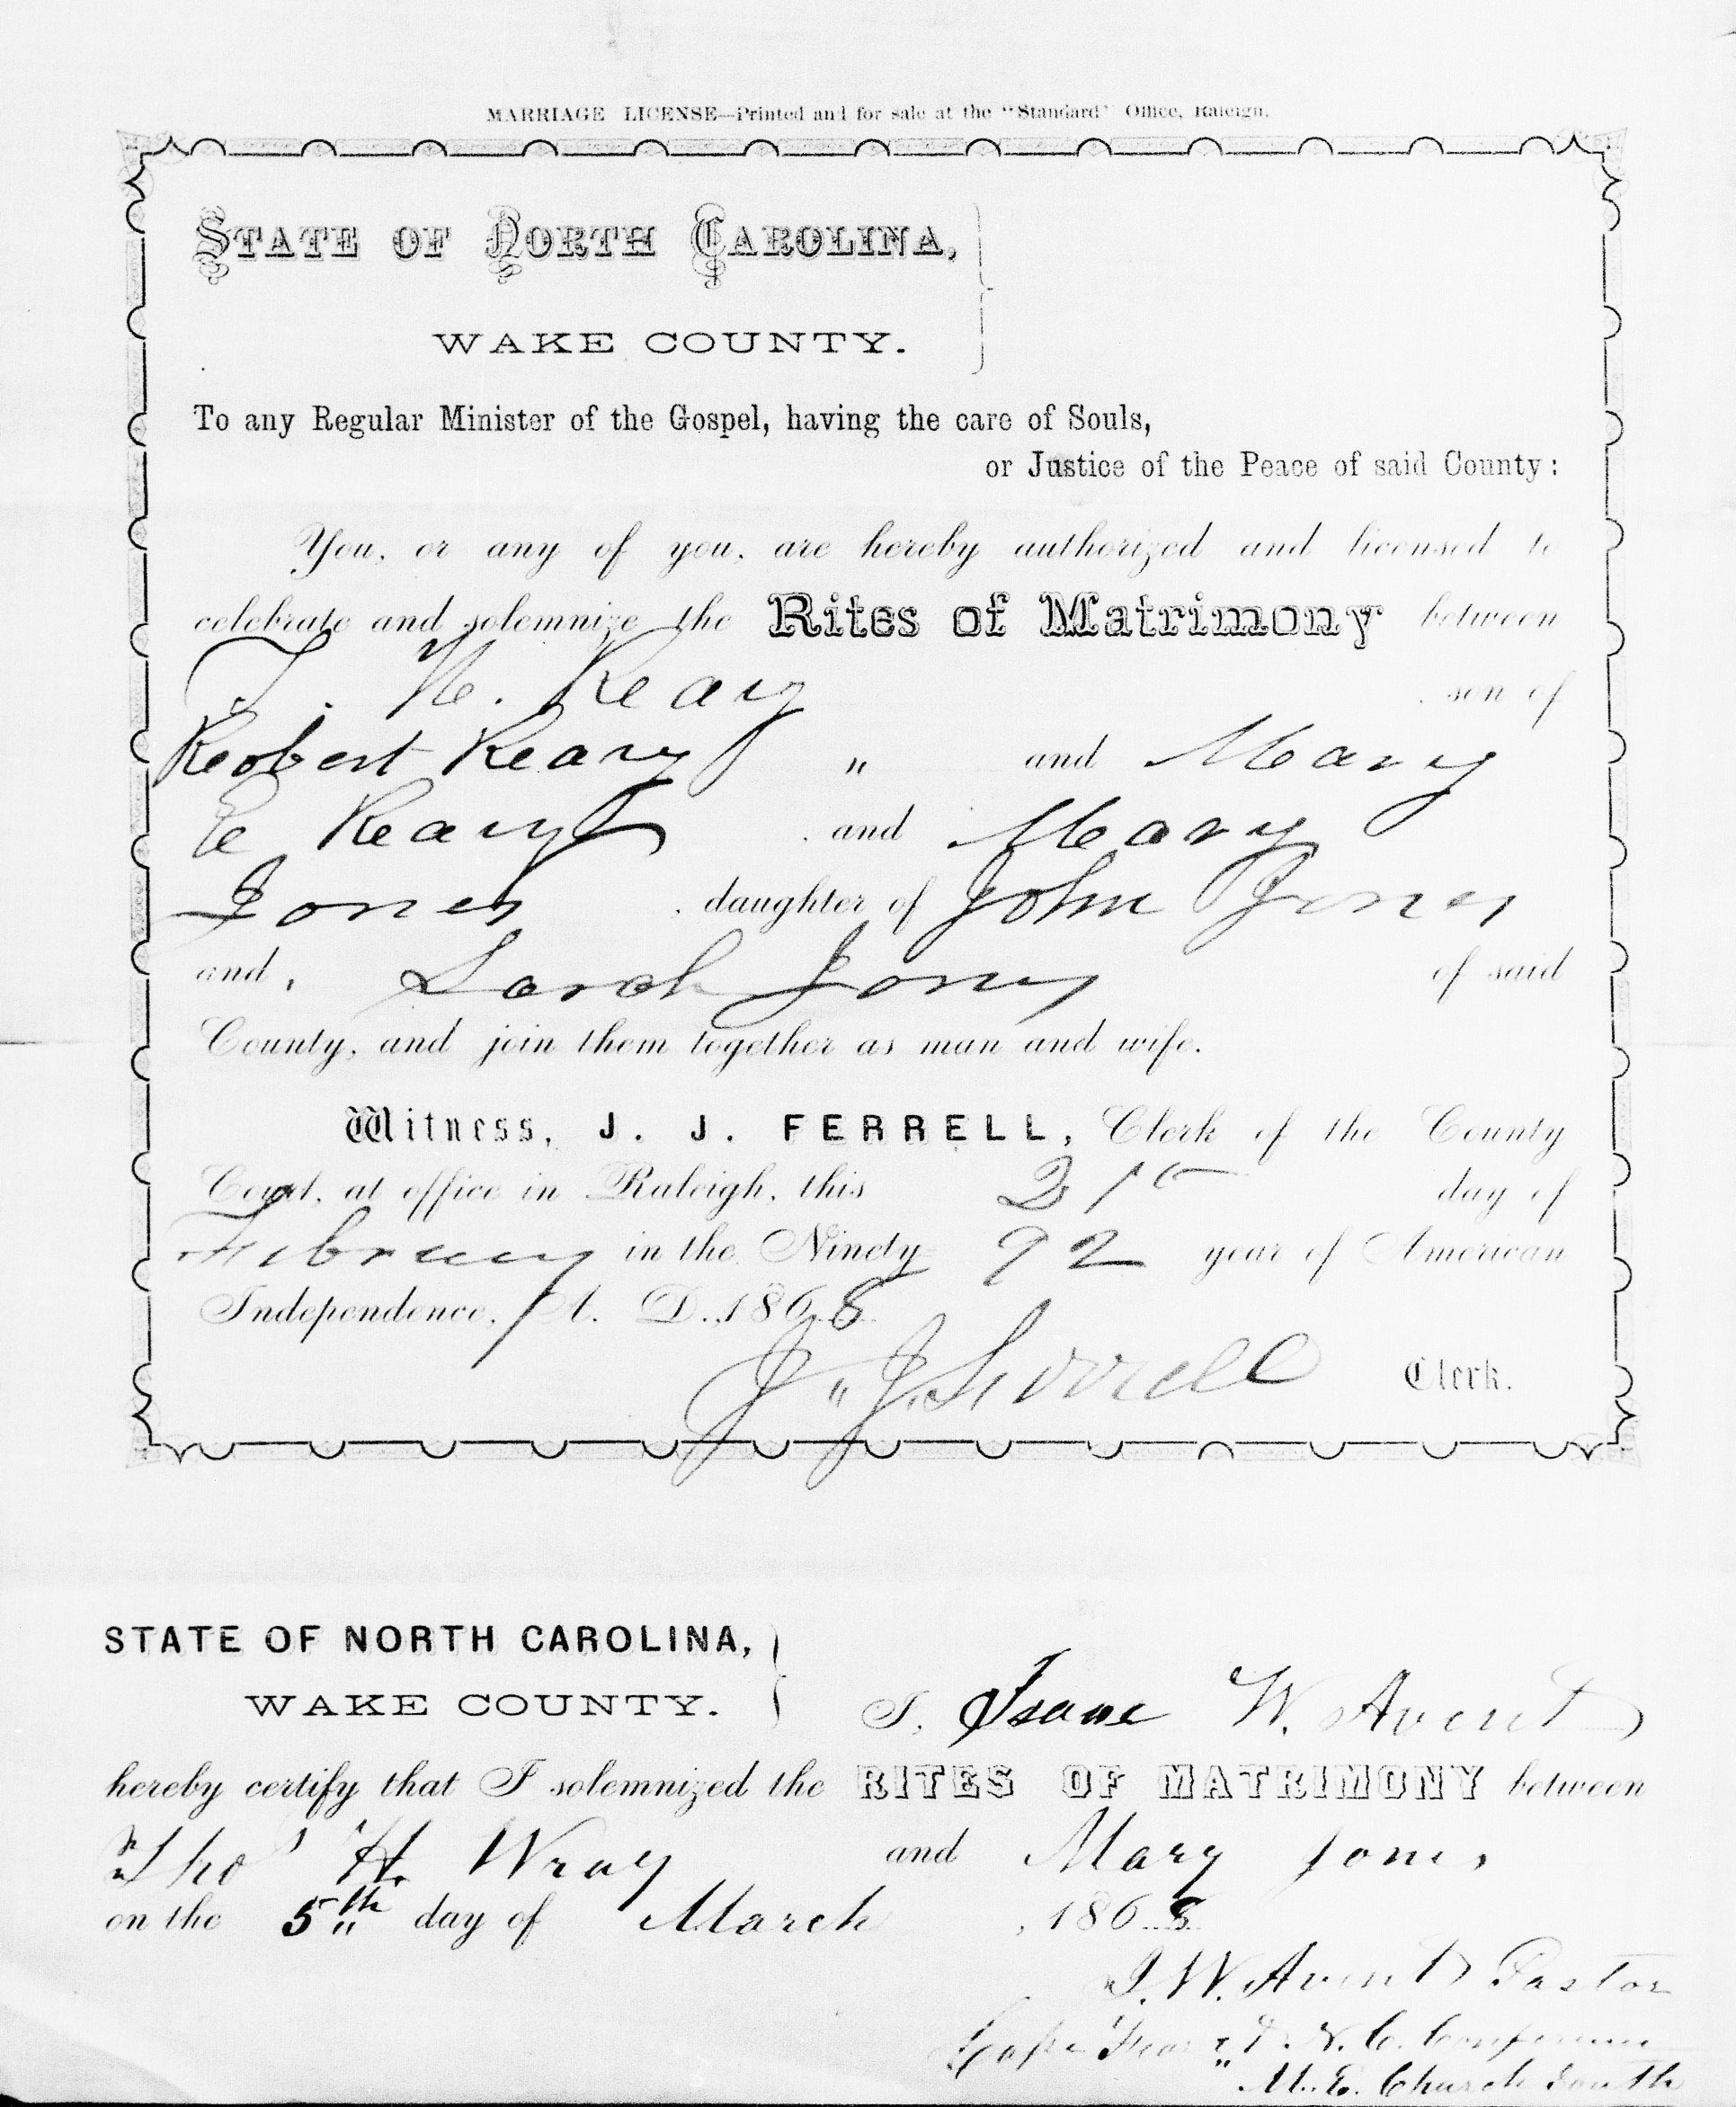 MARRIAGE LICENSE—Printed and for sale at the "Standard" Office, Raleigh.
STATE OF NORTH CAROLINA,
WAKE COUNTY.
To any Regular Minister of the Gospel, having the care of Souls,
or Justice of the Peace of said County:
You, or any of you, are hereby authorized and licensed to
celebrate and solemnize the Rites of Matrimony between
T. H. Reay son of
Robert Reavy " and Mary
E Reavy and Mary
Jones daughter of John Jones
and, Sarah Jones of said
County, and join them together as man and wife.
Witness, J. J. FERRELL, Clerk of the County
Court, at office in Raleigh, this 21st day of
February in the Ninety 92 year of American
Independence, A. D., 1868
J " J. Ferrell Clerk.
STATE OF NORTH CAROLINA,
WAKE COUNTY. I, Isaac W. Avent
hereby certify that I solemnized the RITES OF MATRIMONY between
Tho's H. Wray and Mary Jones
on the 5th day of March, 1868
I. W. Avent Pastor
Cape Fear N. C. Conference
" M. E. Church South